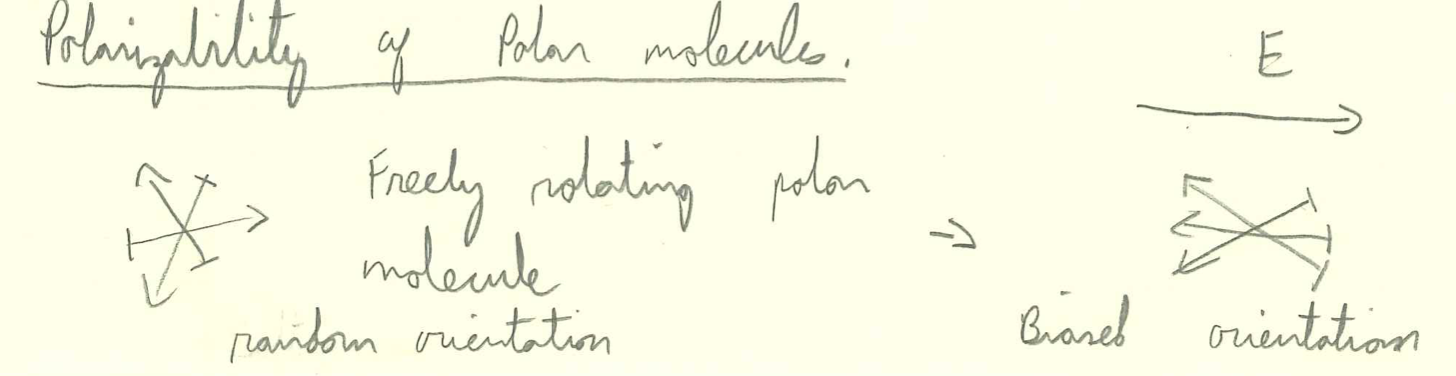 Polarizability of Polar molecules.
E
Freely rotating polar
molecule
random orientation
⇒
Biased orientations